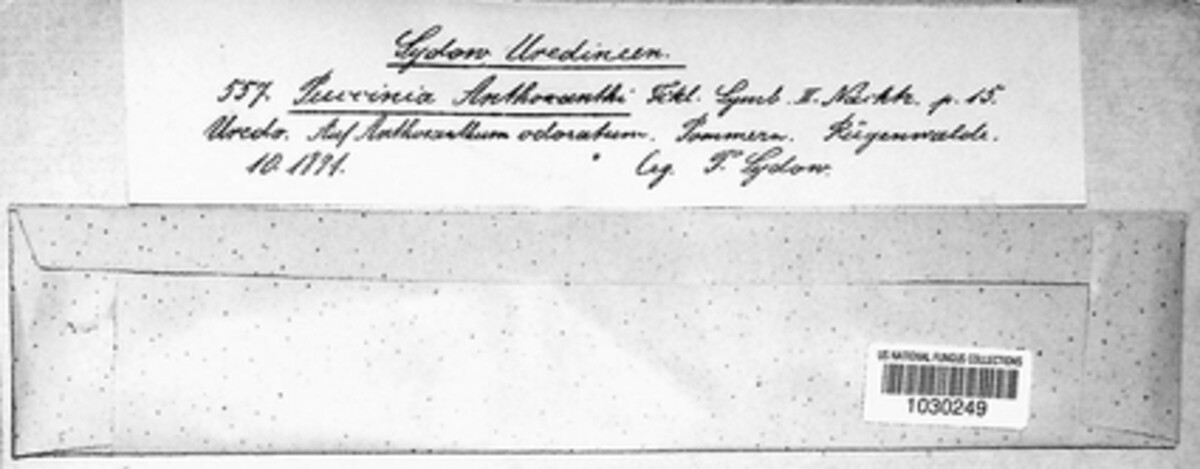 Sydow Uredineen.
557. Puccinia Anthoxanthi Fckl. Symb. II. Nachtr. p. 15.
Uredo. Auf Anthoxanthum odoratum. Pommern. Rügenwalde.
10. 1891. Leg. P. Sydow.
US NATIONAL FUNGUS COLLECTIONS
1030249